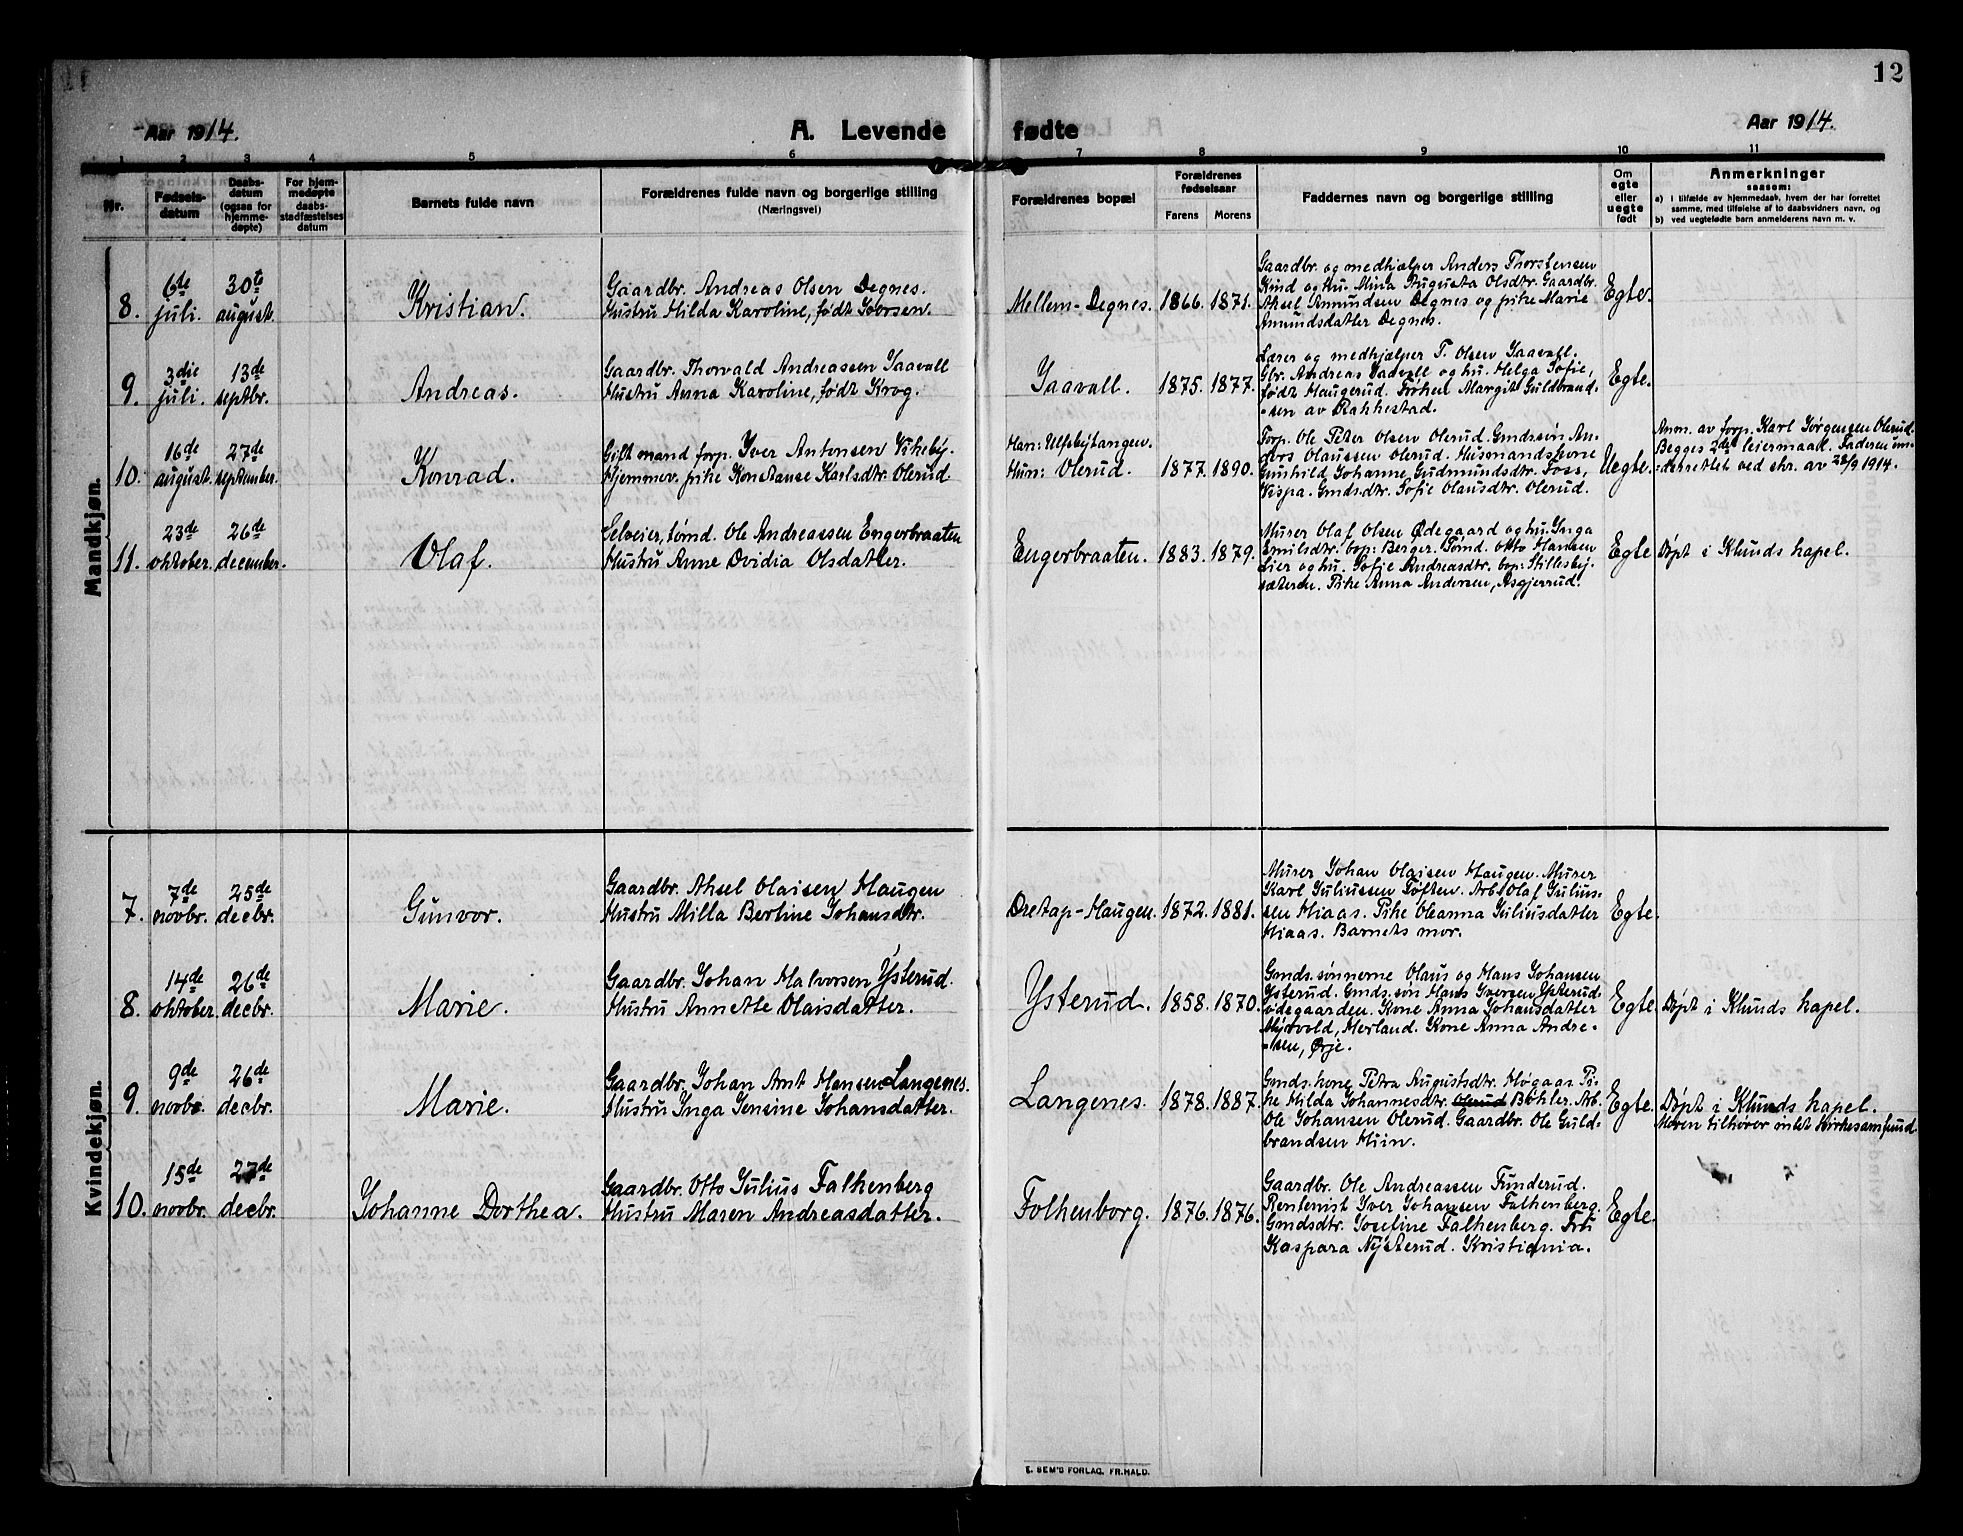 12
Aar 1914.
A. Levende fødte
Aar 1914.
1 2 3 4 5 6 7 8 9 10 11
Nr.
Fødsels-
datum
Daabs-
datum
(ogsaa for
hjemme-
døpte)
For hjem-
medøpte
daabs-
stadfæstelses
datum
Barnets fulde navn
Forældrenes fulde navn og borgerlige stilling
(Næringsvei)
Forældrenes bopæl
Forældrenes
fødselsaar
Farens Morens
Faddernes navn og borgerlige stilling
Om
egte
eller
uegte
født
Anmerkninger
saasom:
a) i tilfælde av hjemmedaab, hvem der har forrettet
samme, med tilføielse af to daabsvidners navn, og
b) ved uegtefødte barn anmelderens navn m. v.
Mandkjøn.
8.
6te
juli.
30te
august.
Kristian.
Gaardbr. Andreas Olsen Degnes.
Hustru Hilda Karoline, født Iversen.
Mellem-Degnes.
1866. 1871.
Gaardbr. og medhjælper Anders Thorstensen
Kind og hu. Mina Augusta Olsdtr. Gaardbr.
Aksel Amundsen Degnes og pike Marie
Amundsdatter Degnes.
Egte.
9.
3die
juli.
13de
septbr.
Andreas.
Gaardbr. Thorvald Andreassen Taavall
Hustru Anna Karoline, født Krog.
Taavall.
1875. 1877.
Lærer og medhjælper T. Olsen Taavall.
Gbr. Andreas Taavall og hu. Helga Sofie,
født Haugerud. Frøken Margit Guldbrand-
-sen av Rakkestad.
Egte.
10.
16de
august.
27de
september.
Konrad.
Gift mand forp. Iver Antonsen Vikeby.
Hjemmev. pike Konstanse Karlsdtr. Olerud.
Han: Ulfsbytangen.
Hun: Olerud.
1877. 1890.
Forp. Ole Peter Olsen Olerud. Gmds.søn An-
ders Olaussen Olerud. Husmandskone
Gunhild Johanne Gudmundsdtr. Foss,
Vispa. Gmds.dtr. Sofie Olausdtr. Olerud.
Uegte.
Anm. av forp. Karl Jørgensen Olerud.
Begges 2det leiermaal. Faderen un-
-derrettet ved skr. av 28/9 1914.
11.
23de
oktober.
26de
december.
Olaf.
Selveier, tømd. Ole Andreassen Engerbraaten
Hustru Anne Ovidia Olsdatter.
Engerbraaten.
1883. 1879.
Murer Olaf Olsen Ødegaard og hu. Inga
Emilsdtr. bop: Berger. Tømd. Otto Hansen
Lier og hu. Sofie Andreasdtr. bop: Stillesby-
sæteren. Pike Anna Andersen, Asgjerrud.
Egte
Døpt i Klunds kapel.
Kvindekjøn.
7.
7de
novbr.
25de
decbr.
Gunvor.
Gaardbr. Aksel Olaisen Haugen
Hustru Milla Bertine Johansdtr.
Oretap-Haugen.
1872. 1881.
Murer Johan Olaisen Haugen. Murer
Karl Juliussen Toften. Arb. Olaf Julius-
sen Hiaas. Pike Oleanna Juliusdatter
Hiaas. Barnets mor.
Egte.
8.
14de
oktober.
26de
decbr.
Marie.
Gaardbr. Johan Halvorsen Ysterud.
Hustru Annette Olaisdatter.
Ysterud.
1858. 1870.
Gmds.sønnerne Olaus og Hans Johansen
Ysterud. Gmds.søn Hans Iversen Ysterud-
ødegaarden. Kone Anna Johansdatter
Myrvold, Herland. Kone Anna Andre-
-sen, Ørje.
Egte.
Døpt i Klunds kapel.
9.
9de
novbr.
26de
decbr.
Marie.
Gaardbr. Johan Amt Hansen Langenes.
Hustru Inga Jensine Johansdatter.
Langenes.
1878. 1887.
Gmds.kone Petra Augustsdtr. Høgaas. Pi-
ke Hilda Johannesdtr. Olerud Bøhler. Arb.
Ole Johansen Olerud. Gaardbr. Ole Guld-
brandsen Hiin.
Egte.
Døpt i Klunds kapel.
Moren tilhører intet kirkesamfund.
10.
15de
novbr.
27de
decbr.
Johanne Dorthea.
Gaardbr. Otto Julius Falkenberg
Hustru Maren Andreasdatter.
Folkenborg.
1876. 1876.
Gaardbr. Ole Andreassen Funderud.
Rentenist Iver Johansen Falkenberg.
Gmdsdtr. Joseline Falkenberg. Fru
Kaspara Nysterud. Kristiania.
Egte.
E. SEM'S FORLAG, FR.HALD.